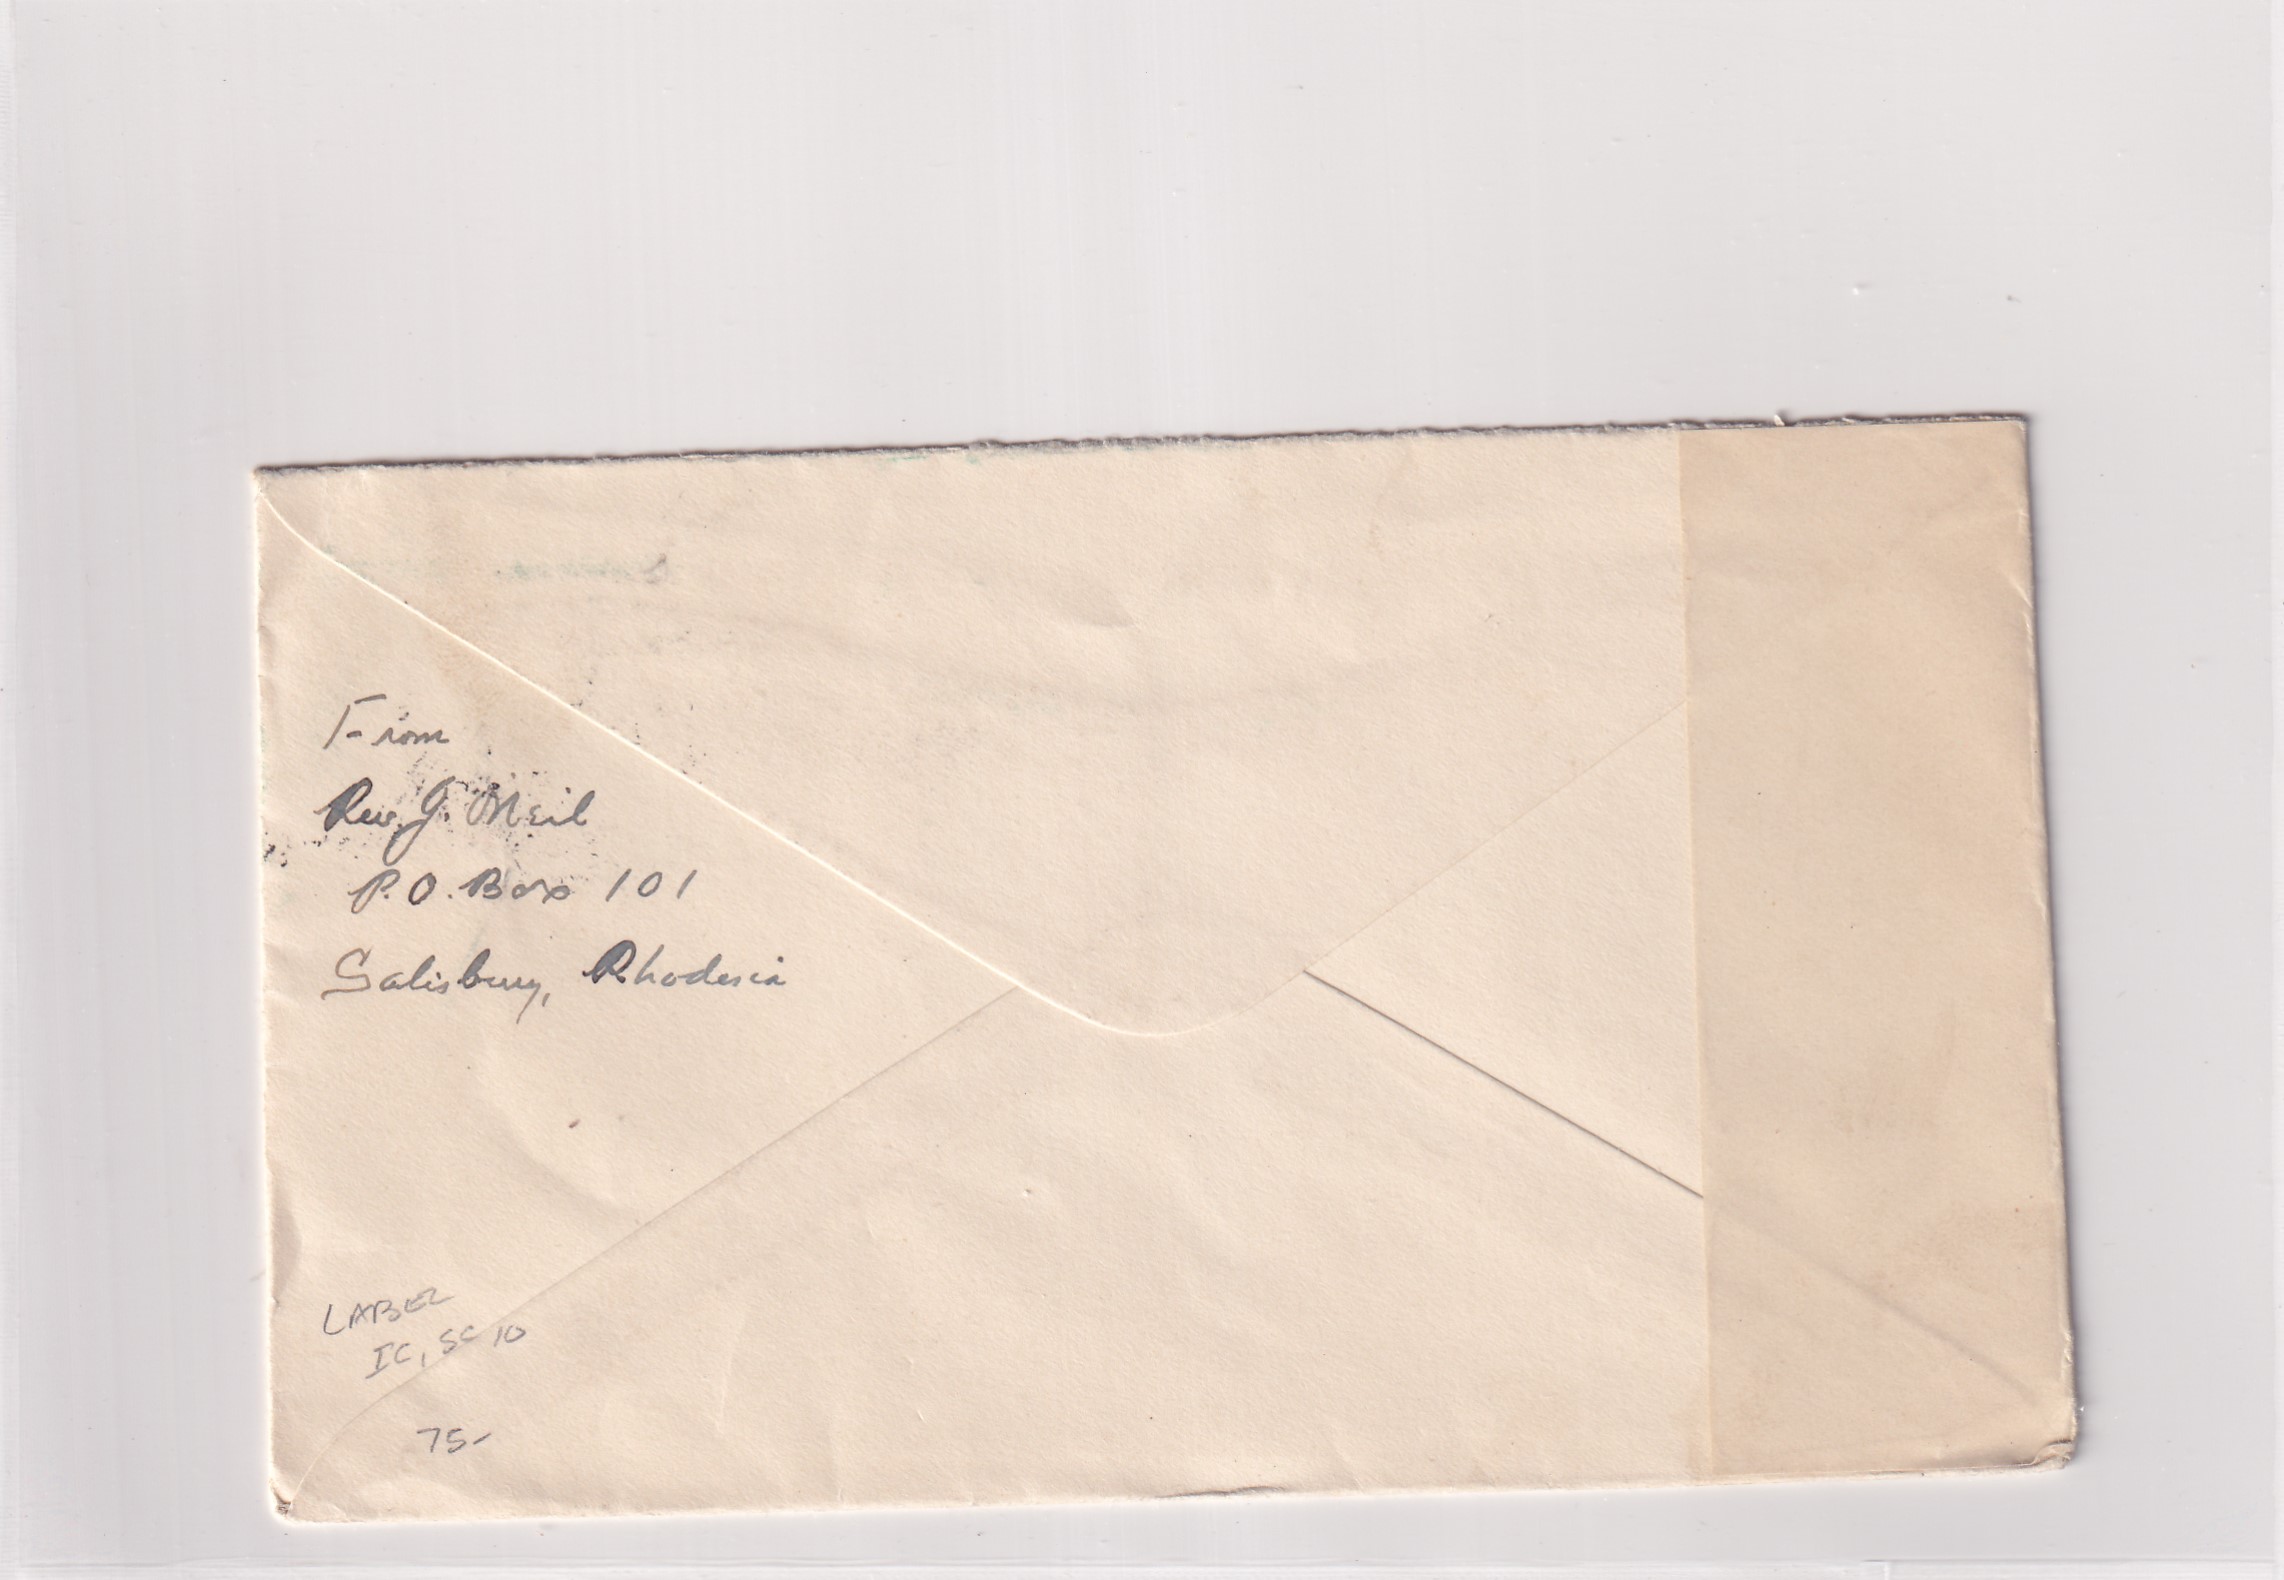 From
Rev. J. O'Neil
P.O. Box 101
Salisbury, Rhodesia
LABEL
IC, SC 10
75-